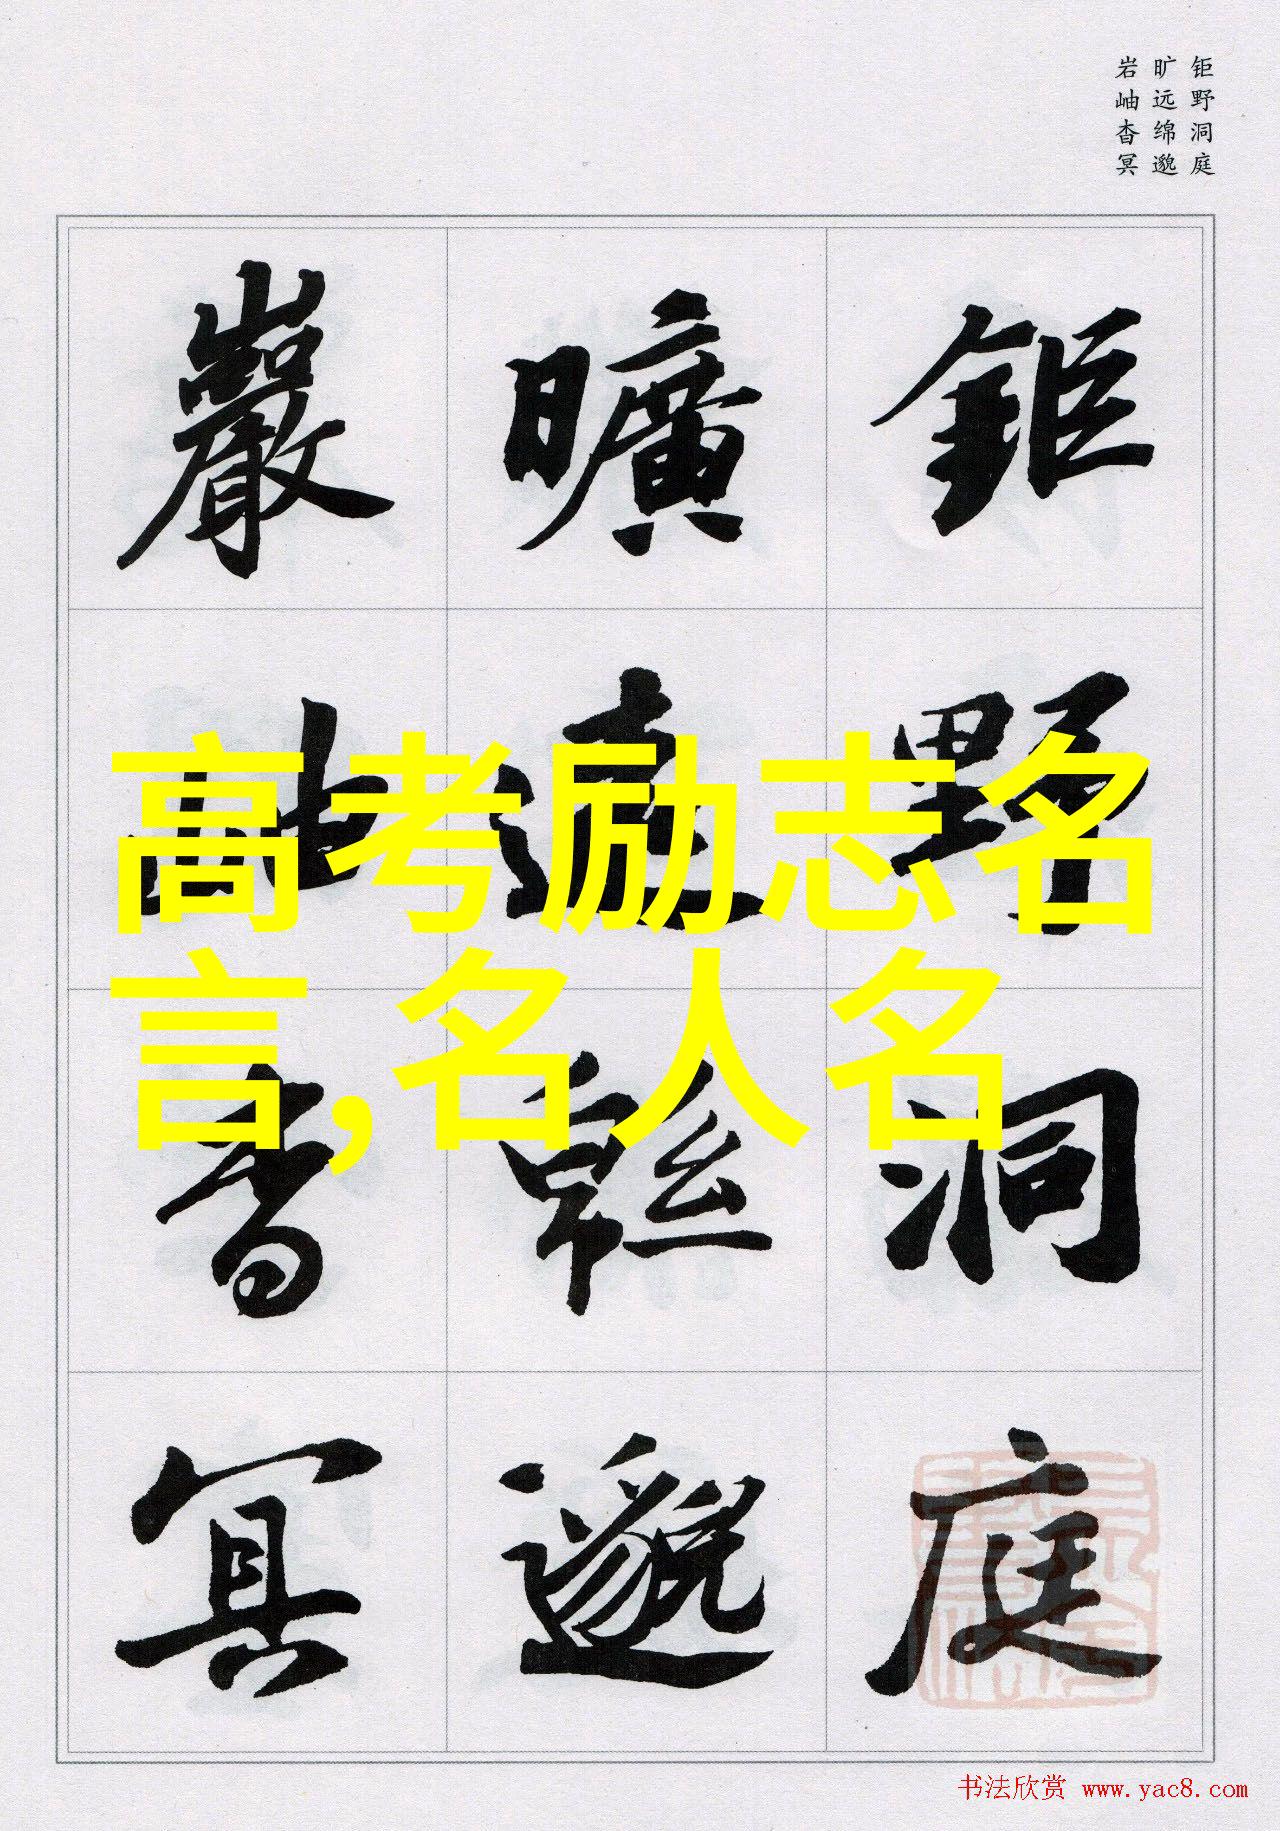 钜野洞庭
旷远绵邈
岩岫杳冥
鉅野洞庭
曠遠緜邈
巖岫杳冥
高考励志名
言,名人名
书法欣赏 www.yac8.com